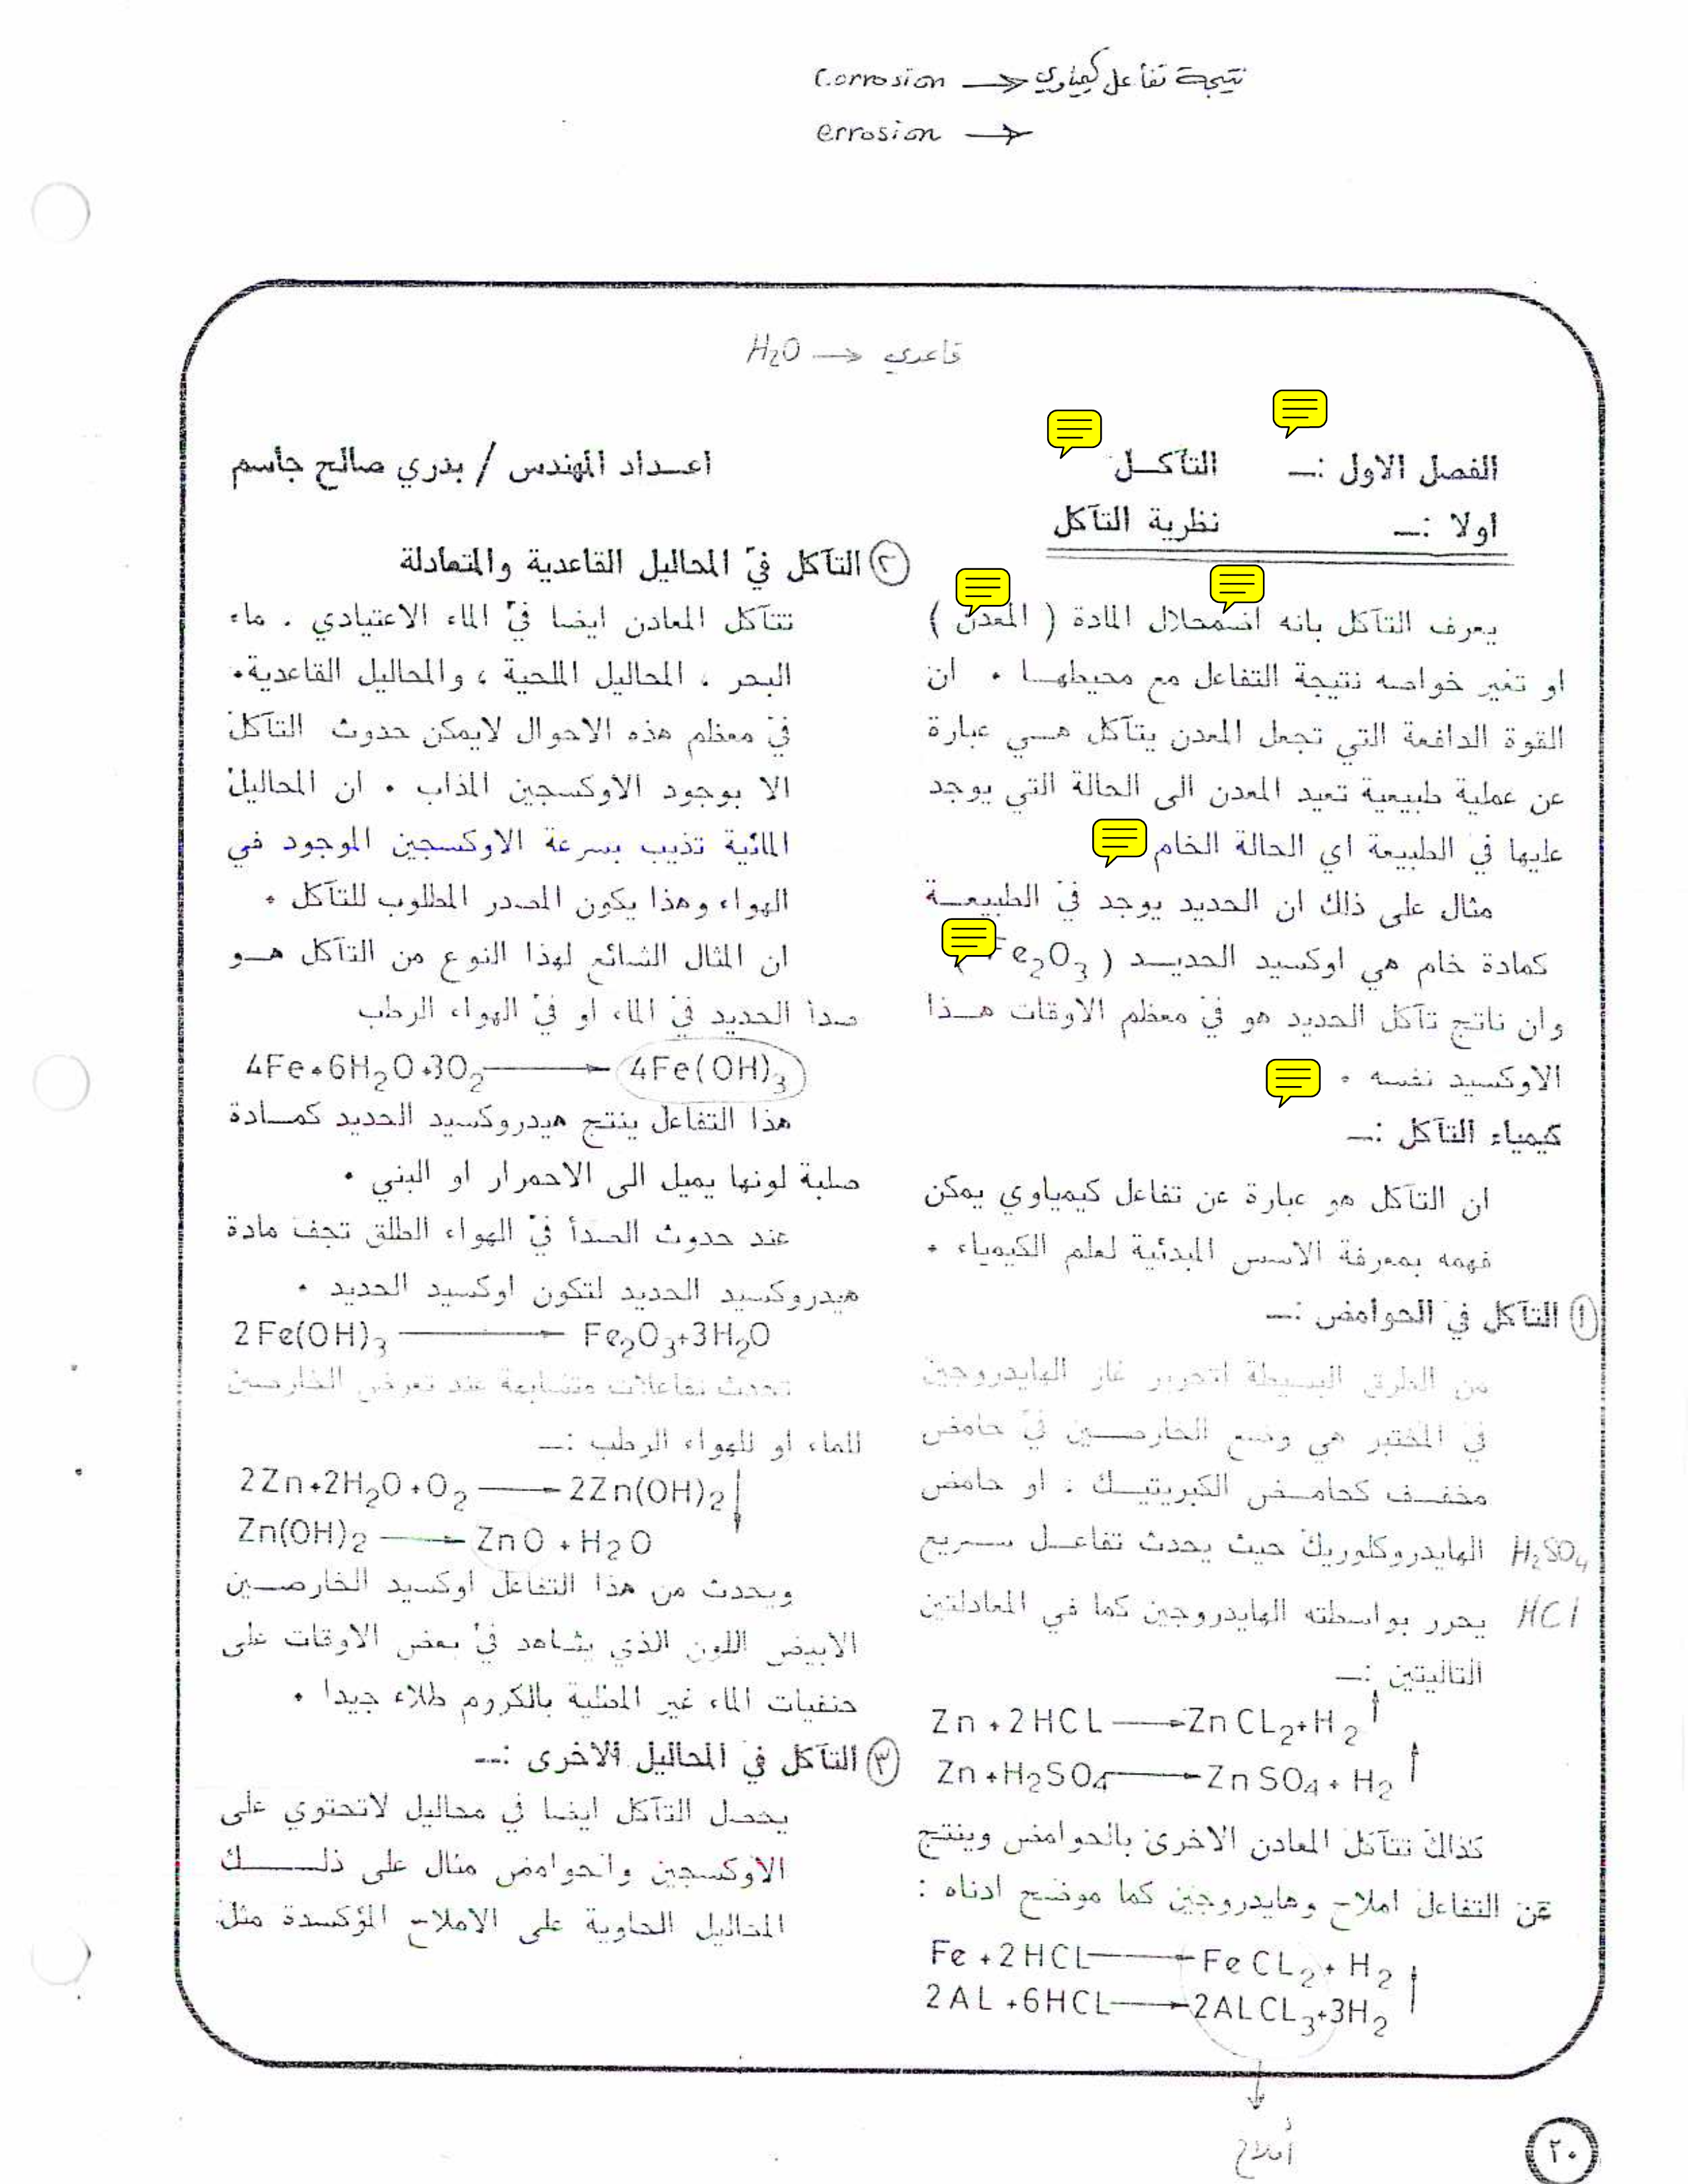 Corrosion → نتيجة تفاعل كيمياوي
errosion →
H2O → قاعدي
الفصل الاول :ـ التآكـل
اعـداد المهندس / بدري صالح جاسم
اولا :ـ نظرية التآكل
يعرف التآكل بانه اضمحلال المادة ( المعدن )
او تغير خواصه نتيجة التفاعل مع محيطهـا . ان
القوة الدافعة التي تجعل المعدن يتآكل هـي عبارة
عن عملية طبيعية تعيد المعدن الى الحالة التي يوجد
عليها في الطبيعة اي الحالة الخام
مثال على ذلك ان الحديد يوجد في الطبيعـة
كمادة خام هي اوكسيد الحديـد ( Fe2O3 )
وان ناتج تآكل الحديد هو في معظم الاوقات هـذا
الاوكسيد نفسه .
كيمياء التآكل :ـ
ان التآكل هو عبارة عن تفاعل كيمياوي يمكن
فهمه بمعرفة الاسس المبدئية لعلم الكيمياء .
① التآكل في الحوامض :ـ
من الطرق البسيطة لتحرير غاز الهايدروجين
في المختبر هي وضع الخارصـين في حامض
مخفـف كحامـض الكبريتيـك ، او حامض
H2SO4 الهايدروكلوريك حيث يحدث تفاعـل سـريع
HCl يحرر بواسطته الهايدروجين كما في المعادلتين
التاليتين :ـ
Zn + 2HCL → ZnCL2 + H2 ↑
Zn + H2SO4 → ZnSO4 + H2 ↑
كذلك تتآكل المعادن الاخرى بالحوامض وينتج
عن التفاعل املاح وهايدروجين كما موضح ادناه :
Fe + 2HCL → FeCL2 + H2 ↑
2AL + 6HCL → 2ALCL3 + 3H2
أملاح
② التآكل في المحاليل القاعدية والمتعادلة
تتآكل المعادن ايضا في الماء الاعتيادي . ماء
البحر ، المحاليل الملحية ، والمحاليل القاعدية.
في معظم هذه الاحوال لايمكن حدوث التآكل
الا بوجود الاوكسجين المذاب . ان المحاليل
المائية تذيب بسرعة الاوكسجين الموجود في
الهواء وهذا يكون المصدر المطلوب للتآكل .
ان المثال الشائع لهذا النوع من التآكل هـو
صدأ الحديد في الماء او في الهواء الرطب
4Fe + 6H2O + 3O2 → 4Fe(OH)3
هذا التفاعل ينتج هيدروكسيد الحديد كمـادة
صلبة لونها يميل الى الاحمرار او البني .
عند حدوث الصدأ في الهواء الطلق تجف مادة
هيدروكسيد الحديد لتكون اوكسيد الحديد .
2Fe(OH)3 → Fe2O3 + 3H2O
تحدث تفاعلات متشابهة عند تعرض الخارصين
للماء او للهواء الرطب :ـ
2Zn + 2H2O + O2 → 2Zn(OH)2 ↓
Zn(OH)2 → ZnO + H2O
ويحدث من هذا التفاعل اوكسيد الخارصـين
الابيض اللون الذي يشاهد في بعض الاوقات على
حنفيات الماء غير المطلية بالكروم طلاء جيدا .
③ التآكل في المحاليل الاخرى :ـ
يحصل التآكل ايضا في محاليل لاتحتوي على
الاوكسجين والحوامض مثال على ذلـــك
المحاليل الحاوية على الاملاح المؤكسدة مثل
٢٠